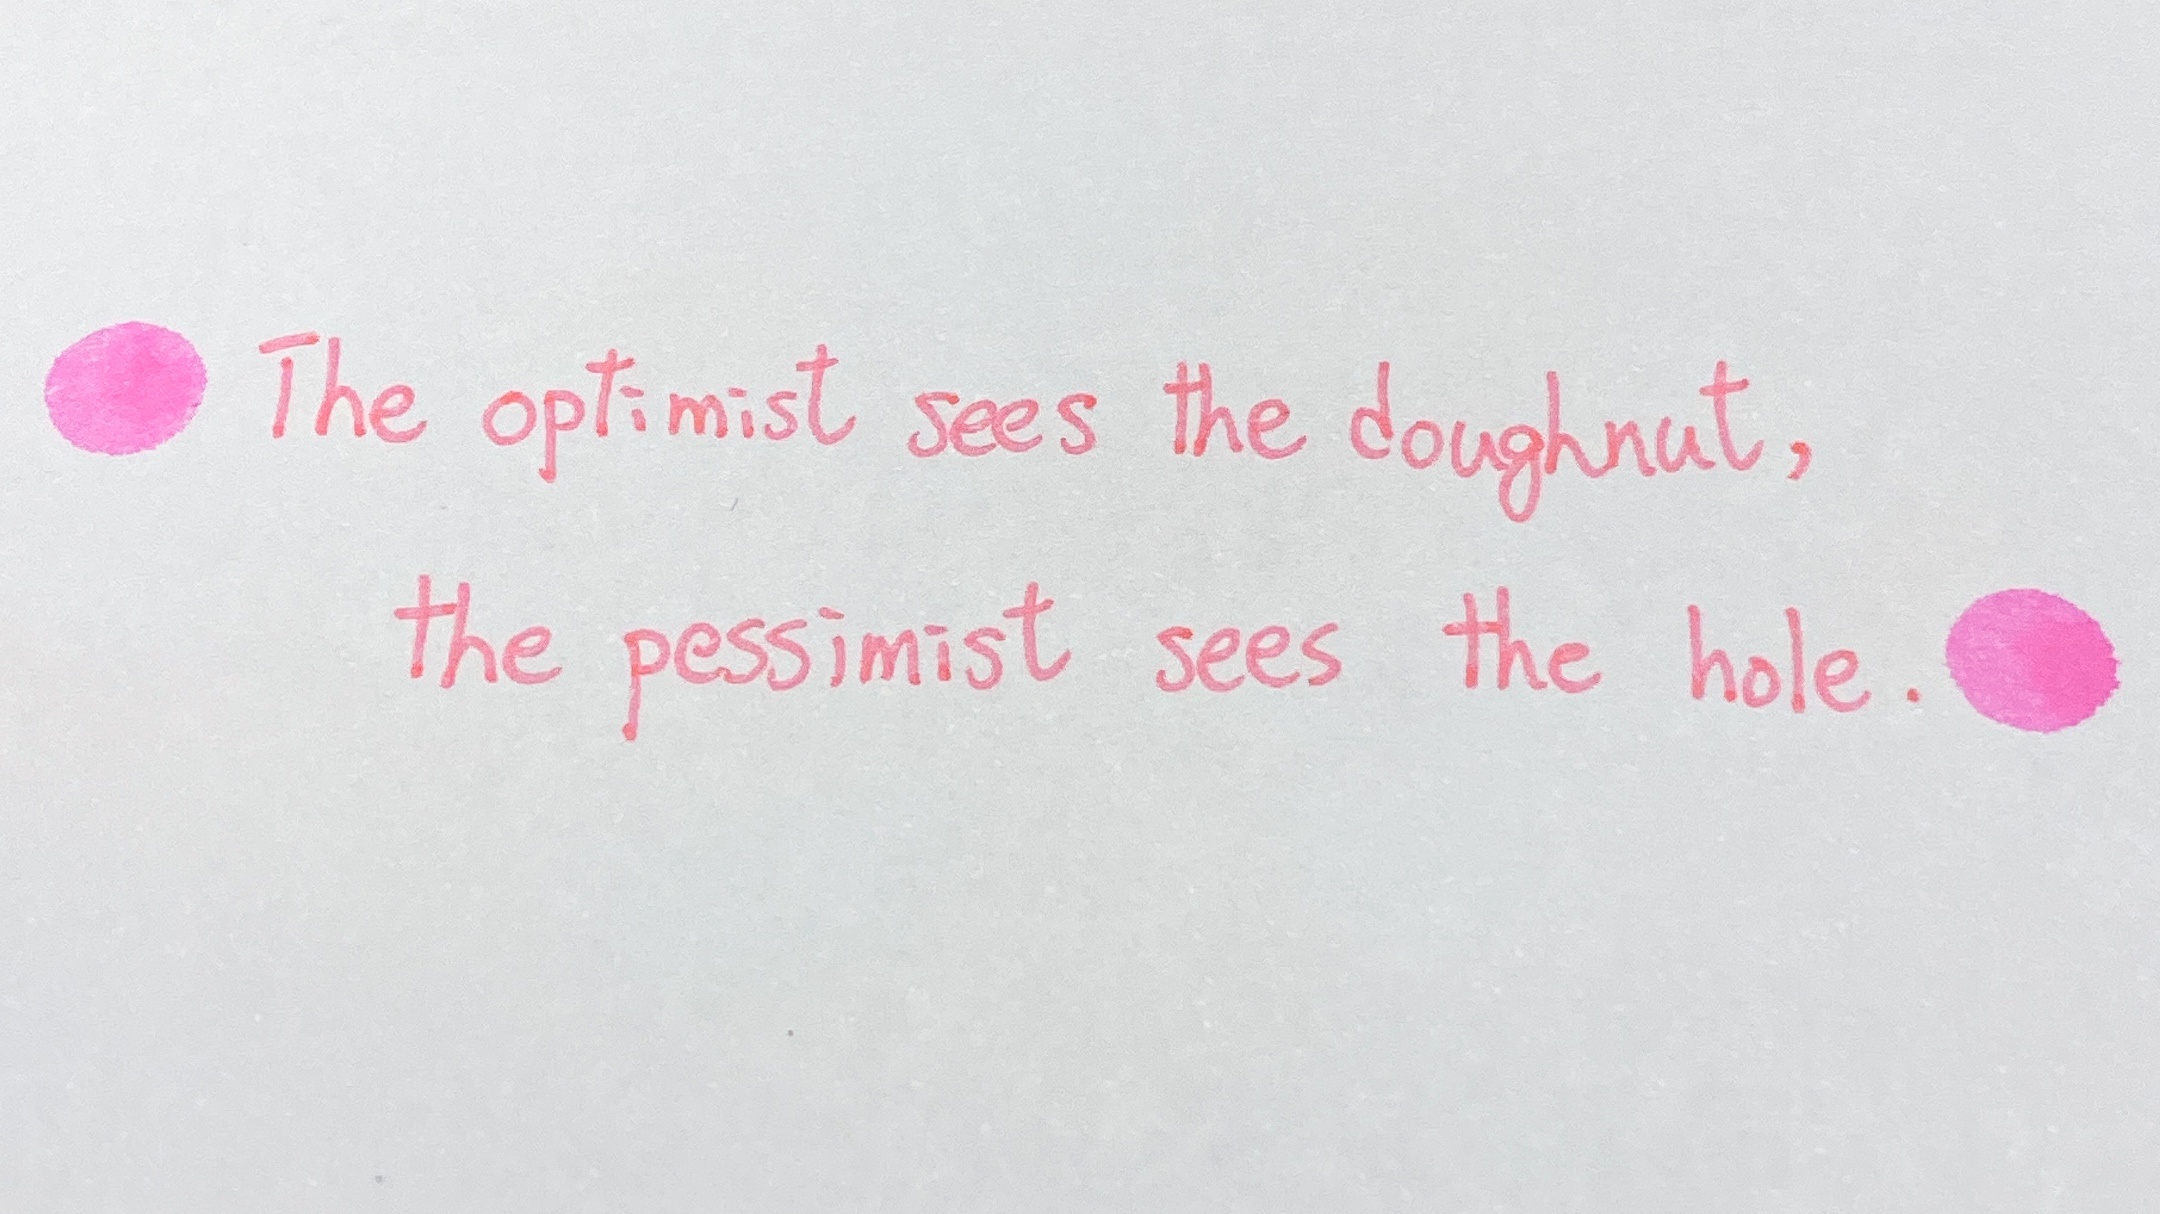 The optimist sees the doughnut,
the pessimist sees the hole.